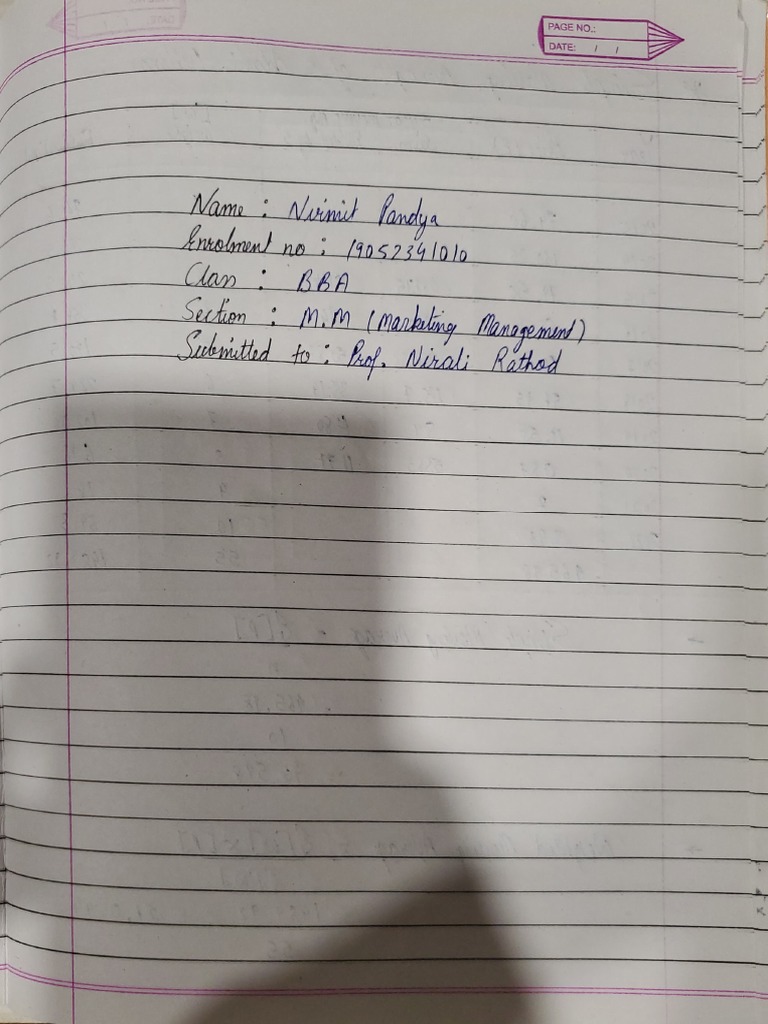 PAGE NO.:
DATE: / /
Name : Nirmit Pandya
Enrolment no : 19052341010
Class : BBA
Section : M.M (Marketing Management)
Submitted to : Prof. Nirali Rathod